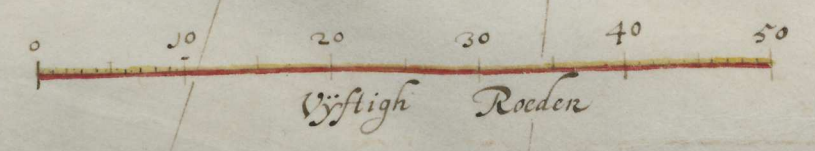 0 10 20 30 40 50
Vÿftigh Roeden